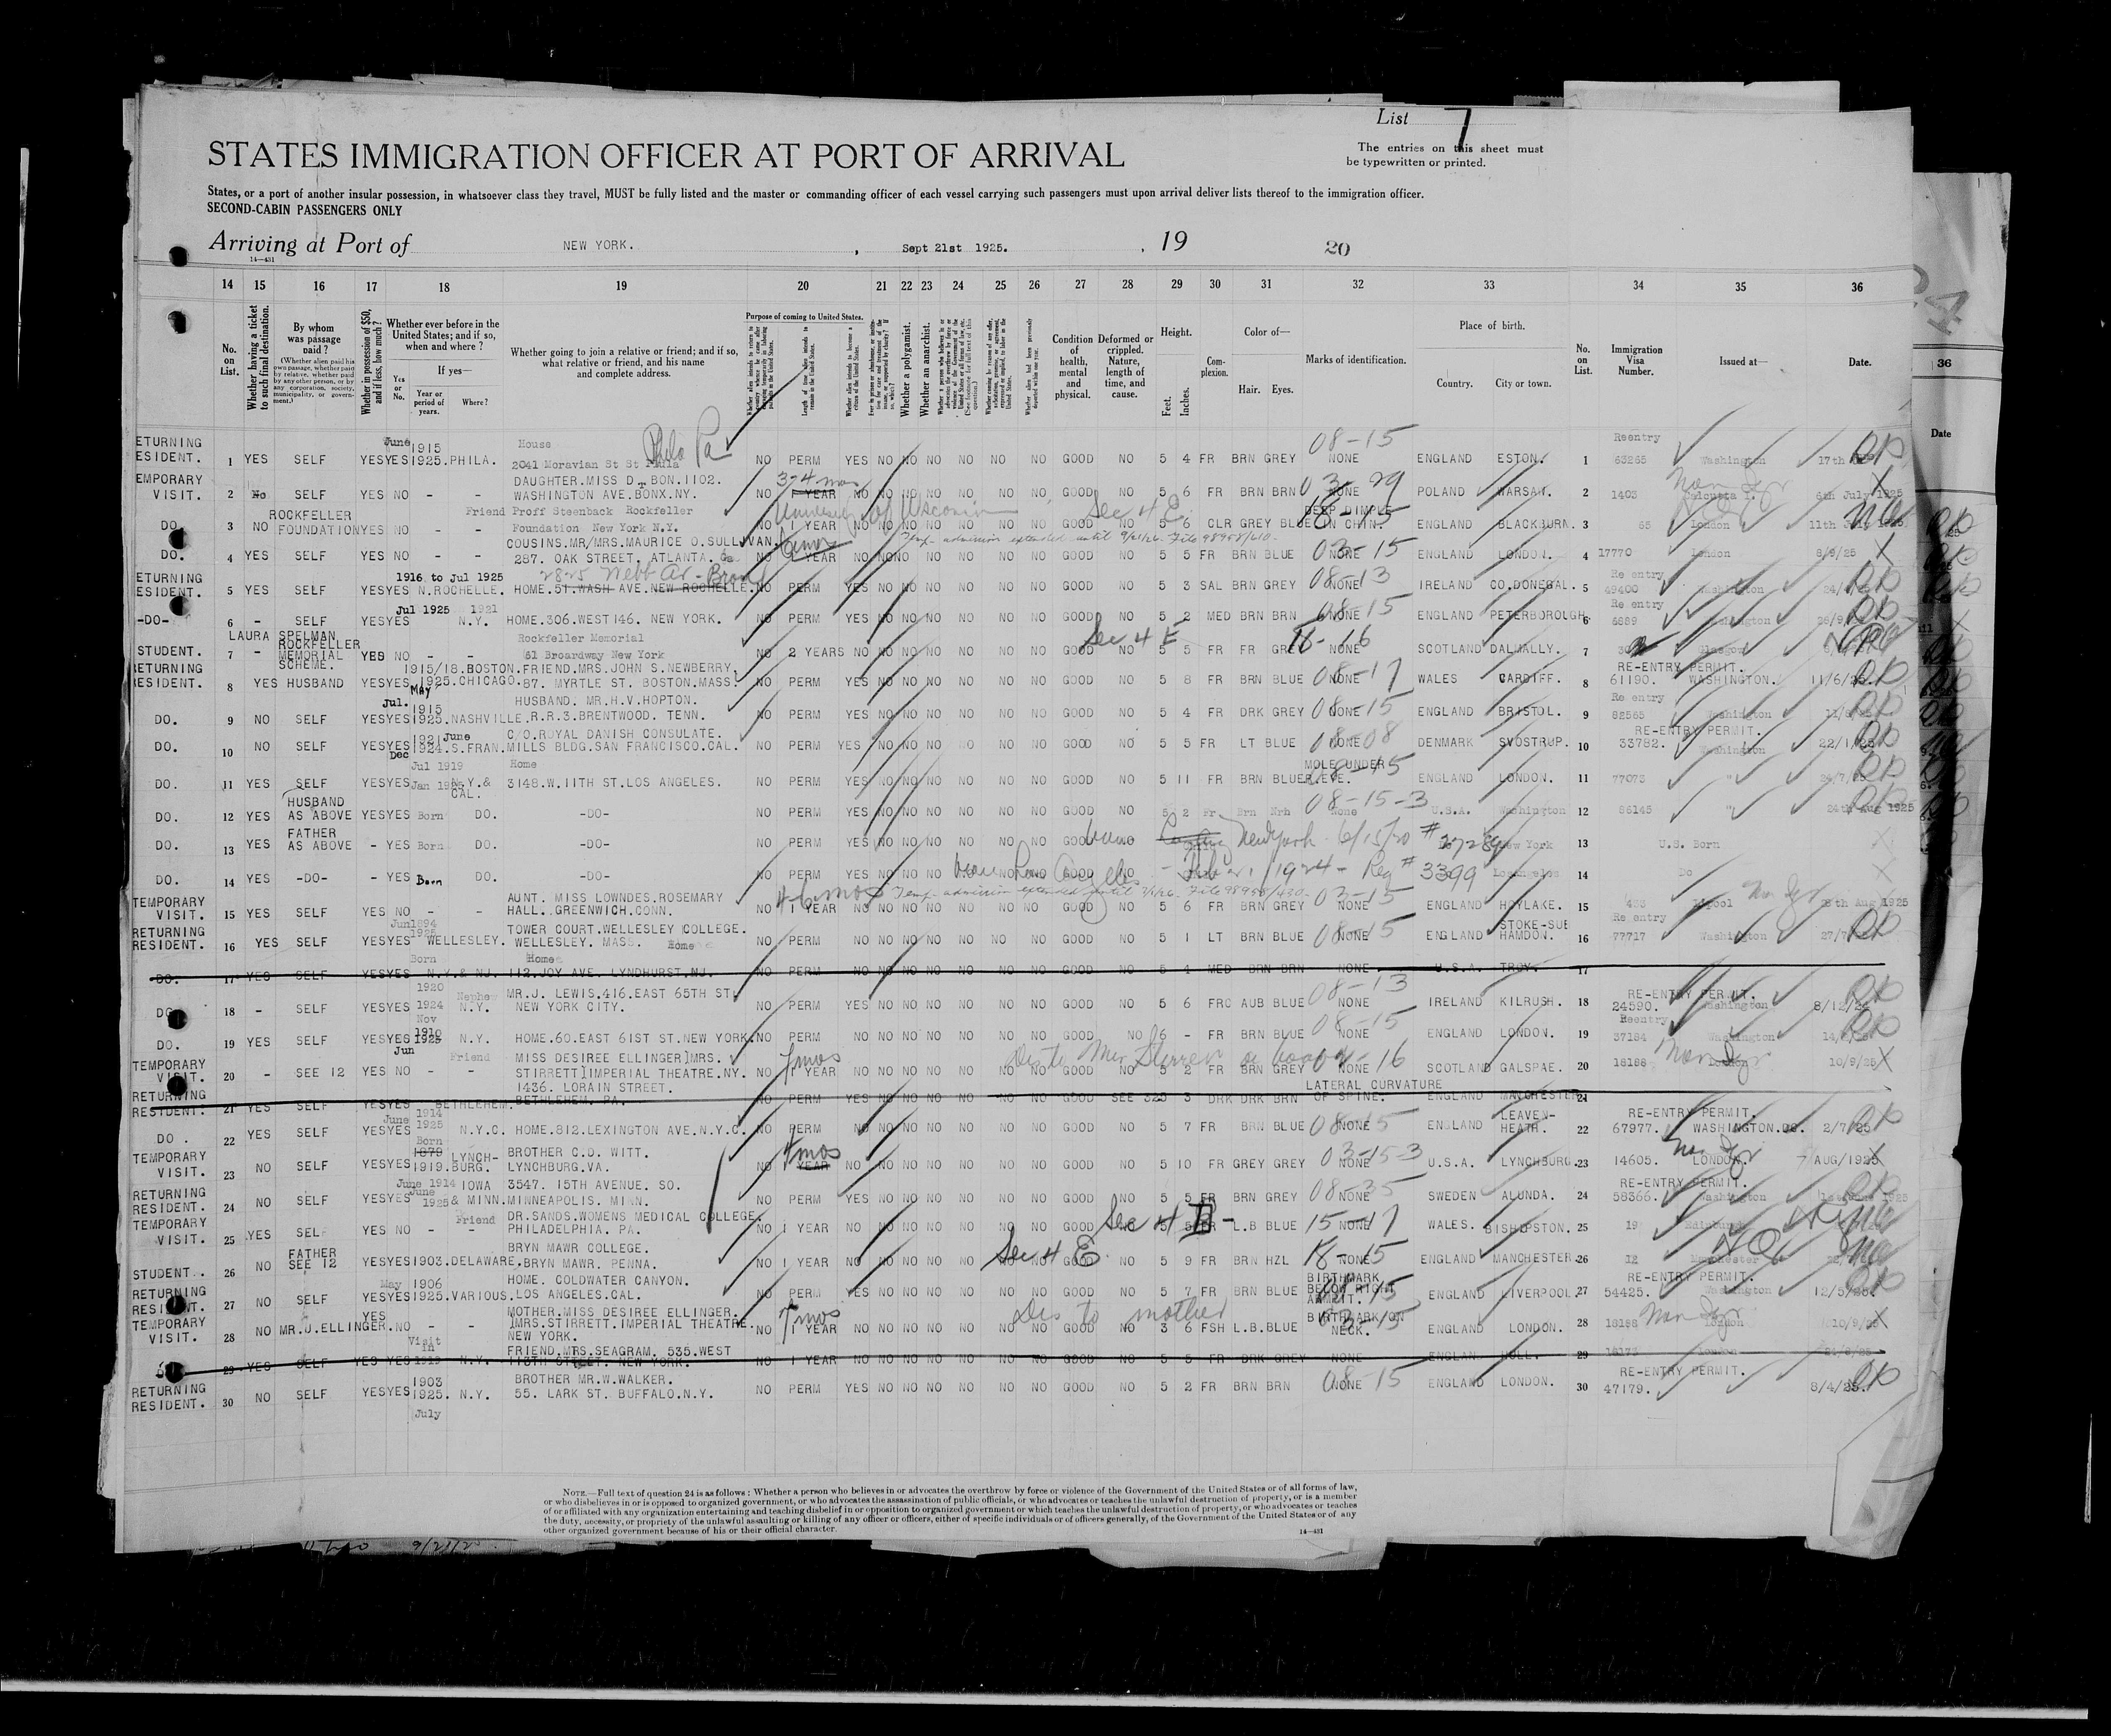 List 7
STATES IMMIGRATION OFFICER AT PORT OF ARRIVAL
The entries on this sheet must
be typewritten or printed.
States, or a port of another insular possession, in whatsoever class they travel, MUST be fully listed and the master or commanding officer of each vessel carrying such passengers must upon arrival deliver lists thereof to the immigration officer.
SECOND-CABIN PASSENGERS ONLY
Arriving at Port of NEW YORK. , Sept 21st 1925. , 19 20
14—431
14 15 16 17 18 19 20 21 22 23 24 25 26 27 28 29 30 31 32 33 34 35 36
No. on List.
Whether having a ticket to such final destination.
By whom was passage paid?
(Whether alien paid his own passage, whether paid by relative, whether paid by any other person, or by any corporation, society, municipality, or government.)
Whether in possession of $50, and if less, how much?
Whether ever before in the United States; and if so, when and where?
If yes—
Yes or No.
Year or period of years.
Where?
Whether going to join a relative or friend; and if so, what relative or friend, and his name and complete address.
Purpose of coming to United States.
Length of time alien intends to remain in the United States.
Whether alien intends to become a citizen of the United States.
Whether a polygamist.
Whether an anarchist.
Condition of health, mental and physical.
Deformed or crippled. Nature, length of time, and cause.
Height.
Feet. Inches.
Complexion.
Color of—
Hair. Eyes.
Marks of identification.
Place of birth.
Country. City or town.
No. on List.
Immigration Visa Number.
Issued at—
Date.
36
Date
ETURNING ESIDENT. 1 YES SELF YES YES June 1915 1925. PHILA. House 2041 Moravian St Phila Pa NO PERM YES NO NO NO NO NO NO GOOD NO 5 4 FR BRN GREY 08-15 NONE ENGLAND ESTON. 1 Reentry 63265 Washington 17th
EMPORARY VISIT. 2 No SELF YES NO - - DAUGHTER. MISS D. BON. 1102. WASHINGTON AVE. BONX. NY. NO 3-4 mos YEAR NO NO NO NO NO NO NO GOOD NO 5 6 FR BRN BRN NONE POLAND WARSAW. 2 1403 Calcutta I. 6th July 1925
DO. 3 NO ROCKFELLER FOUNDATION YES NO - - Friend Proff Steenback Rockfeller Foundation New York N.Y. University of Wisconsin NO 1 YEAR NO NO NO NO NO NO NO GOOD NO Sec 4 E 5 6 CLR GREY BLUE DEEP DIMPLE IN CHIN. 18-15 ENGLAND BLACKBURN. 3 65 London 11th July 1925
Temp. admission extended until 9/21/26. File 98958/610-
DO. 4 YES SELF YES NO - - COUSINS. MR/MRS. MAURICE O. SULLIVAN. 287. OAK STREET. ATLANTA. Ga 6 mos NO YEAR NO NO NO NO NO NO GOOD NO 5 5 FR BRN BLUE 03-15 NONE ENGLAND LONDON. 4 17770 London 8/9/25 X
ETURNING ESIDENT. 5 YES SELF YES YES 1916 to Jul 1925 N. ROCHELLE. HOME. 51. WASH AVE. NEW ROCHELLE. 2825 Webb Av - Bronx NO PERM YES NO NO NO NO NO NO GOOD NO 5 3 SAL BRN GREY 08-13 NONE IRELAND CO. DONEGAL. 5 Re entry 49400 Washington
-DO- 6 - SELF YES YES Jul 1925 1921 N.Y. HOME. 306. WEST 146. NEW YORK. NO PERM YES NO NO NO NO NO NO GOOD NO 5 2 MED BRN BRN 08-15 NONE ENGLAND PETERBOROUGH 6 Re entry Washington
STUDENT. 7 - LAURA SPELMAN ROCKFELLER MEMORIAL SCHEME. YES NO - - Rockfeller Memorial 61 Broardway New York NO 2 YEARS NO NO NO NO NO NO NO GOOD NO Sec 4 E 5 5 FR FR GREY 18-16 NONE SCOTLAND DALMALLY. 7 Glasgow
RETURNING RESIDENT. 8 YES HUSBAND YES YES 1915/18. BOSTON. 1925. CHICAGO. May FRIEND. MRS. JOHN S. NEWBERRY, 87. MYRTLE ST. BOSTON. MASS. NO PERM YES NO NO NO NO NO NO GOOD NO 5 8 FR BRN BLUE 08-17 NONE WALES CARDIFF. 8 RE-ENTRY PERMIT. 61190. WASHINGTON. 11/6/25
DO. 9 NO SELF YES YES Jul. 1915 1925. NASHVILLE. HUSBAND. MR. H. V. HOPTON. R.R.3. BRENTWOOD. TENN. NO PERM YES NO NO NO NO NO NO GOOD NO 5 4 FR DRK GREY 08-15 NONE ENGLAND BRISTOL. 9 Re entry 82565 Washington
DO. 10 NO SELF YES YES 1921 June 1924. Dec S. FRAN. C/O. ROYAL DANISH CONSULATE. MILLS BLDG. SAN FRANCISCO. CAL. NO PERM YES NO NO NO NO NO NO GOOD NO 5 5 FR LT BLUE 08-08 NONE DENMARK SVOSTRUP. 10 RE-ENTRY PERMIT. 33782. Washington 22/1/25
DO. 11 YES SELF YES YES Jul 1919 Jan 1925 N.Y. & CAL. Home 3148. W. 11TH ST. LOS ANGELES. NO PERM YES NO NO NO NO NO NO GOOD NO 5 11 FR BRN BLUE MOLE UNDER R. EYE. 08-15 ENGLAND LONDON. 11 77073 "
DO. 12 YES HUSBAND AS ABOVE YES YES Born DO. -DO- NO PERM YES NO NO NO NO NO NO GOOD NO 5 2 Fr Brn Brn 08-15-3 None U.S.A. Washington 12 86145 " 24th Aug 1925
DO. 13 YES FATHER AS ABOVE - YES Born DO. -DO- NO PERM YES NO NO NO NO NO NO GOOD New York 6/15/20 # 27289 New York 13 U.S. Born
DO. 14 YES -DO- - YES Born DO. -DO- NO PERM YES NO NO NO Los Angeles 1/1924 - Reg # 3399 Losangeles 14 Do
Temp. admission extended until File 98958/430-
TEMPORARY VISIT. 15 YES SELF YES NO - - AUNT. MISS LOWNDES. ROSEMARY HALL. GREENWICH. CONN. NO 4-6 mos 1 YEAR NO NO NO NO NO NO NO GOOD NO 5 6 FR BRN GREY 03-15 NONE ENGLAND HOYLAKE. 15 Lipool 28th Aug 1925
RETURNING RESIDENT. 16 YES SELF YES YES Jun 1894 1925 WELLESLEY. TOWER COURT. WELLESLEY COLLEGE. WELLESLEY. MASS. Home NO PERM NO NO NO NO NO NO NO GOOD NO 5 1 LT BRN BLUE 08-15 NONE ENGLAND STOKE-SUB HAMDON. 16 Re entry 77717 Washington
DO. 17 YES SELF YES YES Born N.Y. & NJ. Home 112. JOY AVE. LYNDHURST. NJ. NO PERM NO NO NO NO NO NO NO GOOD NO 5 4 MED BRN BRN NONE U.S.A. TROY. 17
DO 18 - SELF YES YES 1920 1924 Nov N.Y. Nephew MR. J. LEWIS. 416. EAST 65TH ST. NEW YORK CITY. NO PERM YES NO NO NO NO NO NO GOOD NO 5 6 FRC AUB BLUE 08-13 NONE IRELAND KILRUSH. 18 RE-ENTRY PERMIT. 24590. Washington 8/12/24
DO. 19 YES SELF YES YES 1910 1925 Jun N.Y. HOME. 60. EAST 61ST ST. NEW YORK. NO PERM NO NO NO NO NO NO NO GOOD NO 6 - FR BRN BLUE 08-15 NONE ENGLAND LONDON. 19 Reentry 37184 Washington
TEMPORARY VISIT. 20 - SEE 12 YES NO - - Friend MISS DESIREE ELLINGER]MRS. STIRRETT]IMPERIAL THEATRE. NY. NO 7 mos 1 YEAR NO NO NO NO NO NO NO GOOD NO 5 2 FR BRN GREY NONE SCOTLAND GALSPAE. 20 18188 London 10/9/25 X
RETURNING RESIDENT. 21 YES SELF YES YES BETHLEHEM. 1436. LORAIN STREET. BETHLEHEM. PA. NO PERM YES NO NO NO NO NO NO GOOD SEE 32 5 3 DRK DRK BRN LATERAL CURVATURE OF SPINE. ENGLAND MANCHESTER 21
DO. 22 YES SELF YES YES 1914 June 1925 N.Y.C. HOME. 812. LEXINGTON AVE. N.Y.C. NO PERM NO NO NO NO NO NO GOOD NO 5 7 FR BRN BLUE 08-15 NONE ENGLAND LEAVEN-HEATH. 22 RE-ENTRY PERMIT. 67977. WASHINGTON. DC. 2/7/25
TEMPORARY VISIT. 23 NO SELF YES YES Born 1879 1919. LYNCH-BURG. BROTHER C.D. WITT. LYNCHBURG. VA. NO 4 mos 1 YEAR NO NO NO NO NO NO NO GOOD NO 5 10 FR GREY GREY 03-15-3 NONE U.S.A. LYNCHBURG. 23 14605. LONDON. AUG/1925
RETURNING RESIDENT. 24 NO SELF YES YES June 1914 June 1925 IOWA & MINN. 3547. 15TH AVENUE. SO. MINNEAPOLIS. MINN. NO PERM YES NO NO NO NO NO NO GOOD NO 5 5 FR BRN GREY 08-35 NONE SWEDEN ALUNDA. 24 RE-ENTRY PERMIT. 58366. Washington
TEMPORARY VISIT. 25 YES SELF YES NO - - Friend DR. SANDS. WOMENS MEDICAL COLLEGE. PHILADELPHIA. PA. NO 1 YEAR NO NO NO NO NO NO NO GOOD Sec 4 E - L.B BLUE 15-17 NONE WALES. BISHOPSTON. 25 19 Edinburgh
STUDENT. 26 NO FATHER SEE 12 YES YES 1903. DELAWARE. BRYN MAWR COLLEGE. BRYN MAWR. PENNA. NO 1 YEAR NO NO NO NO NO Sec 4 E NO 5 9 FR BRN HZL 18-15 NONE ENGLAND MANCHESTER 26 12 Manchester
RETURNING RESIDENT. 27 NO SELF YES YES May 1906 1925. VARIOUS. HOME. COLDWATER CANYON. LOS ANGELES. CAL. NO PERM YES NO NO NO NO NO NO GOOD NO 5 7 FR BRN BLUE BIRTHMARK BELOW RIGHT ARMPIT. ENGLAND LIVERPOOL 27 RE-ENTRY PERMIT. 54425. Washington 12/5/25
TEMPORARY VISIT. 28 NO MR. J. ELLINGER. YES NO - - MOTHER. MISS DESIREE ELLINGER. ]MRS. STIRRETT. IMPERIAL THEATRE. NEW YORK. NO 7 mos 1 YEAR NO NO NO NO NO NO NO GOOD NO Dis to mother 3 6 FSH L.B. BLUE BIRTHMARK ON NECK. 03-15 ENGLAND LONDON. 28 18188 London 10/9/25
29 YES SELF YES YES Visit in 1919 N.Y. FRIEND. MRS. SEAGRAM. 535. WEST 113TH STREET. NEW YORK. NO 1 YEAR NO NO NO NO NO NO NO GOOD NO 5 5 FR DRK GREY NONE ENGLAN HULL. 29 London
RETURNING RESIDENT. 30 NO SELF YES YES 1903 1925. July N.Y. BROTHER MR. W. WALKER. 55. LARK ST. BUFFALO. N.Y. NO PERM YES NO NO NO NO NO NO GOOD NO 5 2 FR BRN BRN 08-15 NONE ENGLAND LONDON. 30 RE-ENTRY PERMIT. 47179. 8/4/25.
NOTE.—Full text of question 24 is as follows: Whether a person who believes in or advocates the overthrow by force or violence of the Government of the United States or of all forms of law,
or who disbelieves in or is opposed to organized government, or who advocates the assassination of public officials, or who advocates or teaches the unlawful destruction of property, or is a member
of or affiliated with any organization entertaining and teaching disbelief in or opposition to organized government or which teaches the unlawful destruction of property, or who advocates or teaches
the duty, necessity, or propriety of the unlawful assaulting or killing of any officer or officers, either of specific individuals or of officers generally, of the Government of the United States or of any
other organized government because of his or their official character.
14—431